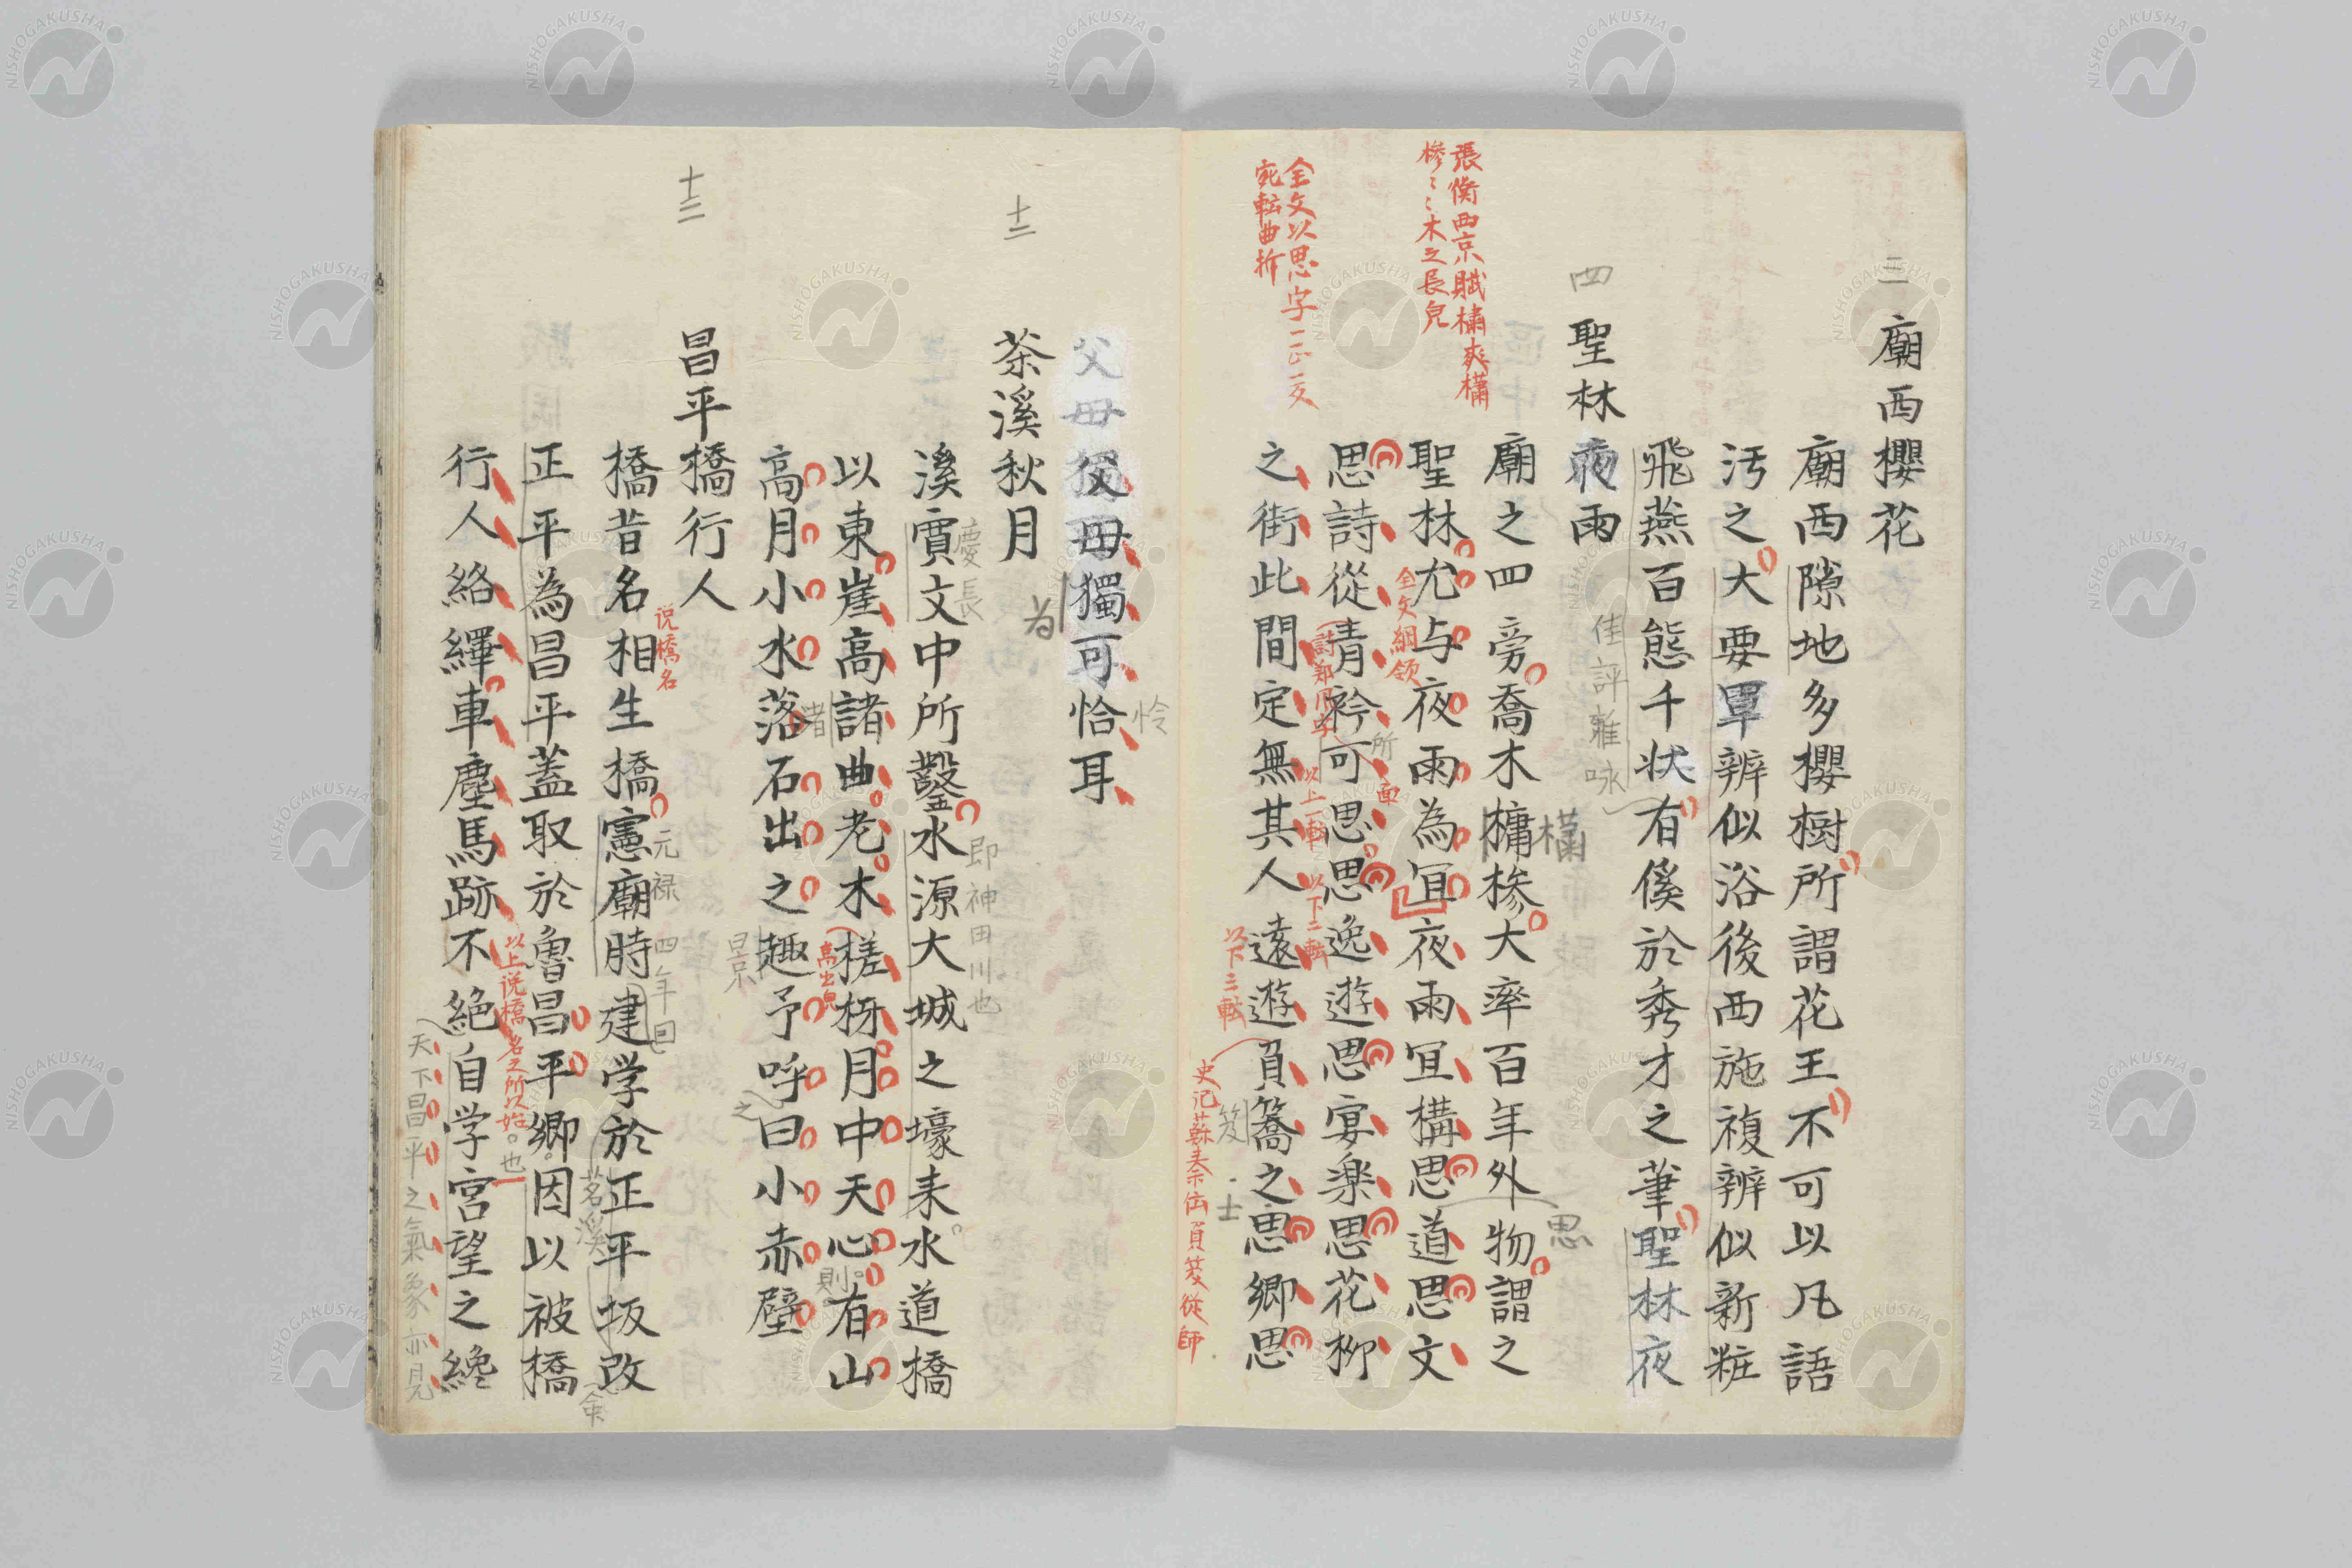 三
廟西櫻花
廟西隙地多櫻樹所謂花王不可以凡語
汚之大要單辨似浴後西施複辨似新粧
飛燕百態千状有傒於秀才之筆聖林夜
佳評雅咏
四
聖林夜雨
廟之四旁喬木槦槮大率百年外物謂之
橚
思
張衡西京賦橚爽櫹
槮〻〻木之長皃
聖林尤与夜雨為宜夜雨宜構思道思文
全文綱領
思詩從青衿可思思逸遊思宴楽思花柳
所
面
詩鄭風字
之街此間定無其人遠遊負簦之思郷思
以上一転
以下二転
全文以思字一正一反
宛転曲折
以下三転
笈
士
史記蘇秦伝負笈從師
父母獨可
父母獨可恰耳
憐
為
十二
茶溪秋月
溪寛文中所鑿水源大城之壕耒水道橋
慶長
即神田川也
以東崖高諸曲老木槎枒月中天心有山
渚
高出皃
則
高月小水落石出之趣予呼曰小赤壁
景
之
十三
昌平橋行人
橋昔名相生橋憲廟時建学於正平坂改
说橋名
元禄四年
茗溪
余
正平為昌平蓋取於魯昌平郷因以被橋
以上说橋名之所以始
也
行人絡繹車塵馬跡不絶自学宮望之纔
天下昌平之氣象亦見
NISHOGAKUSHA